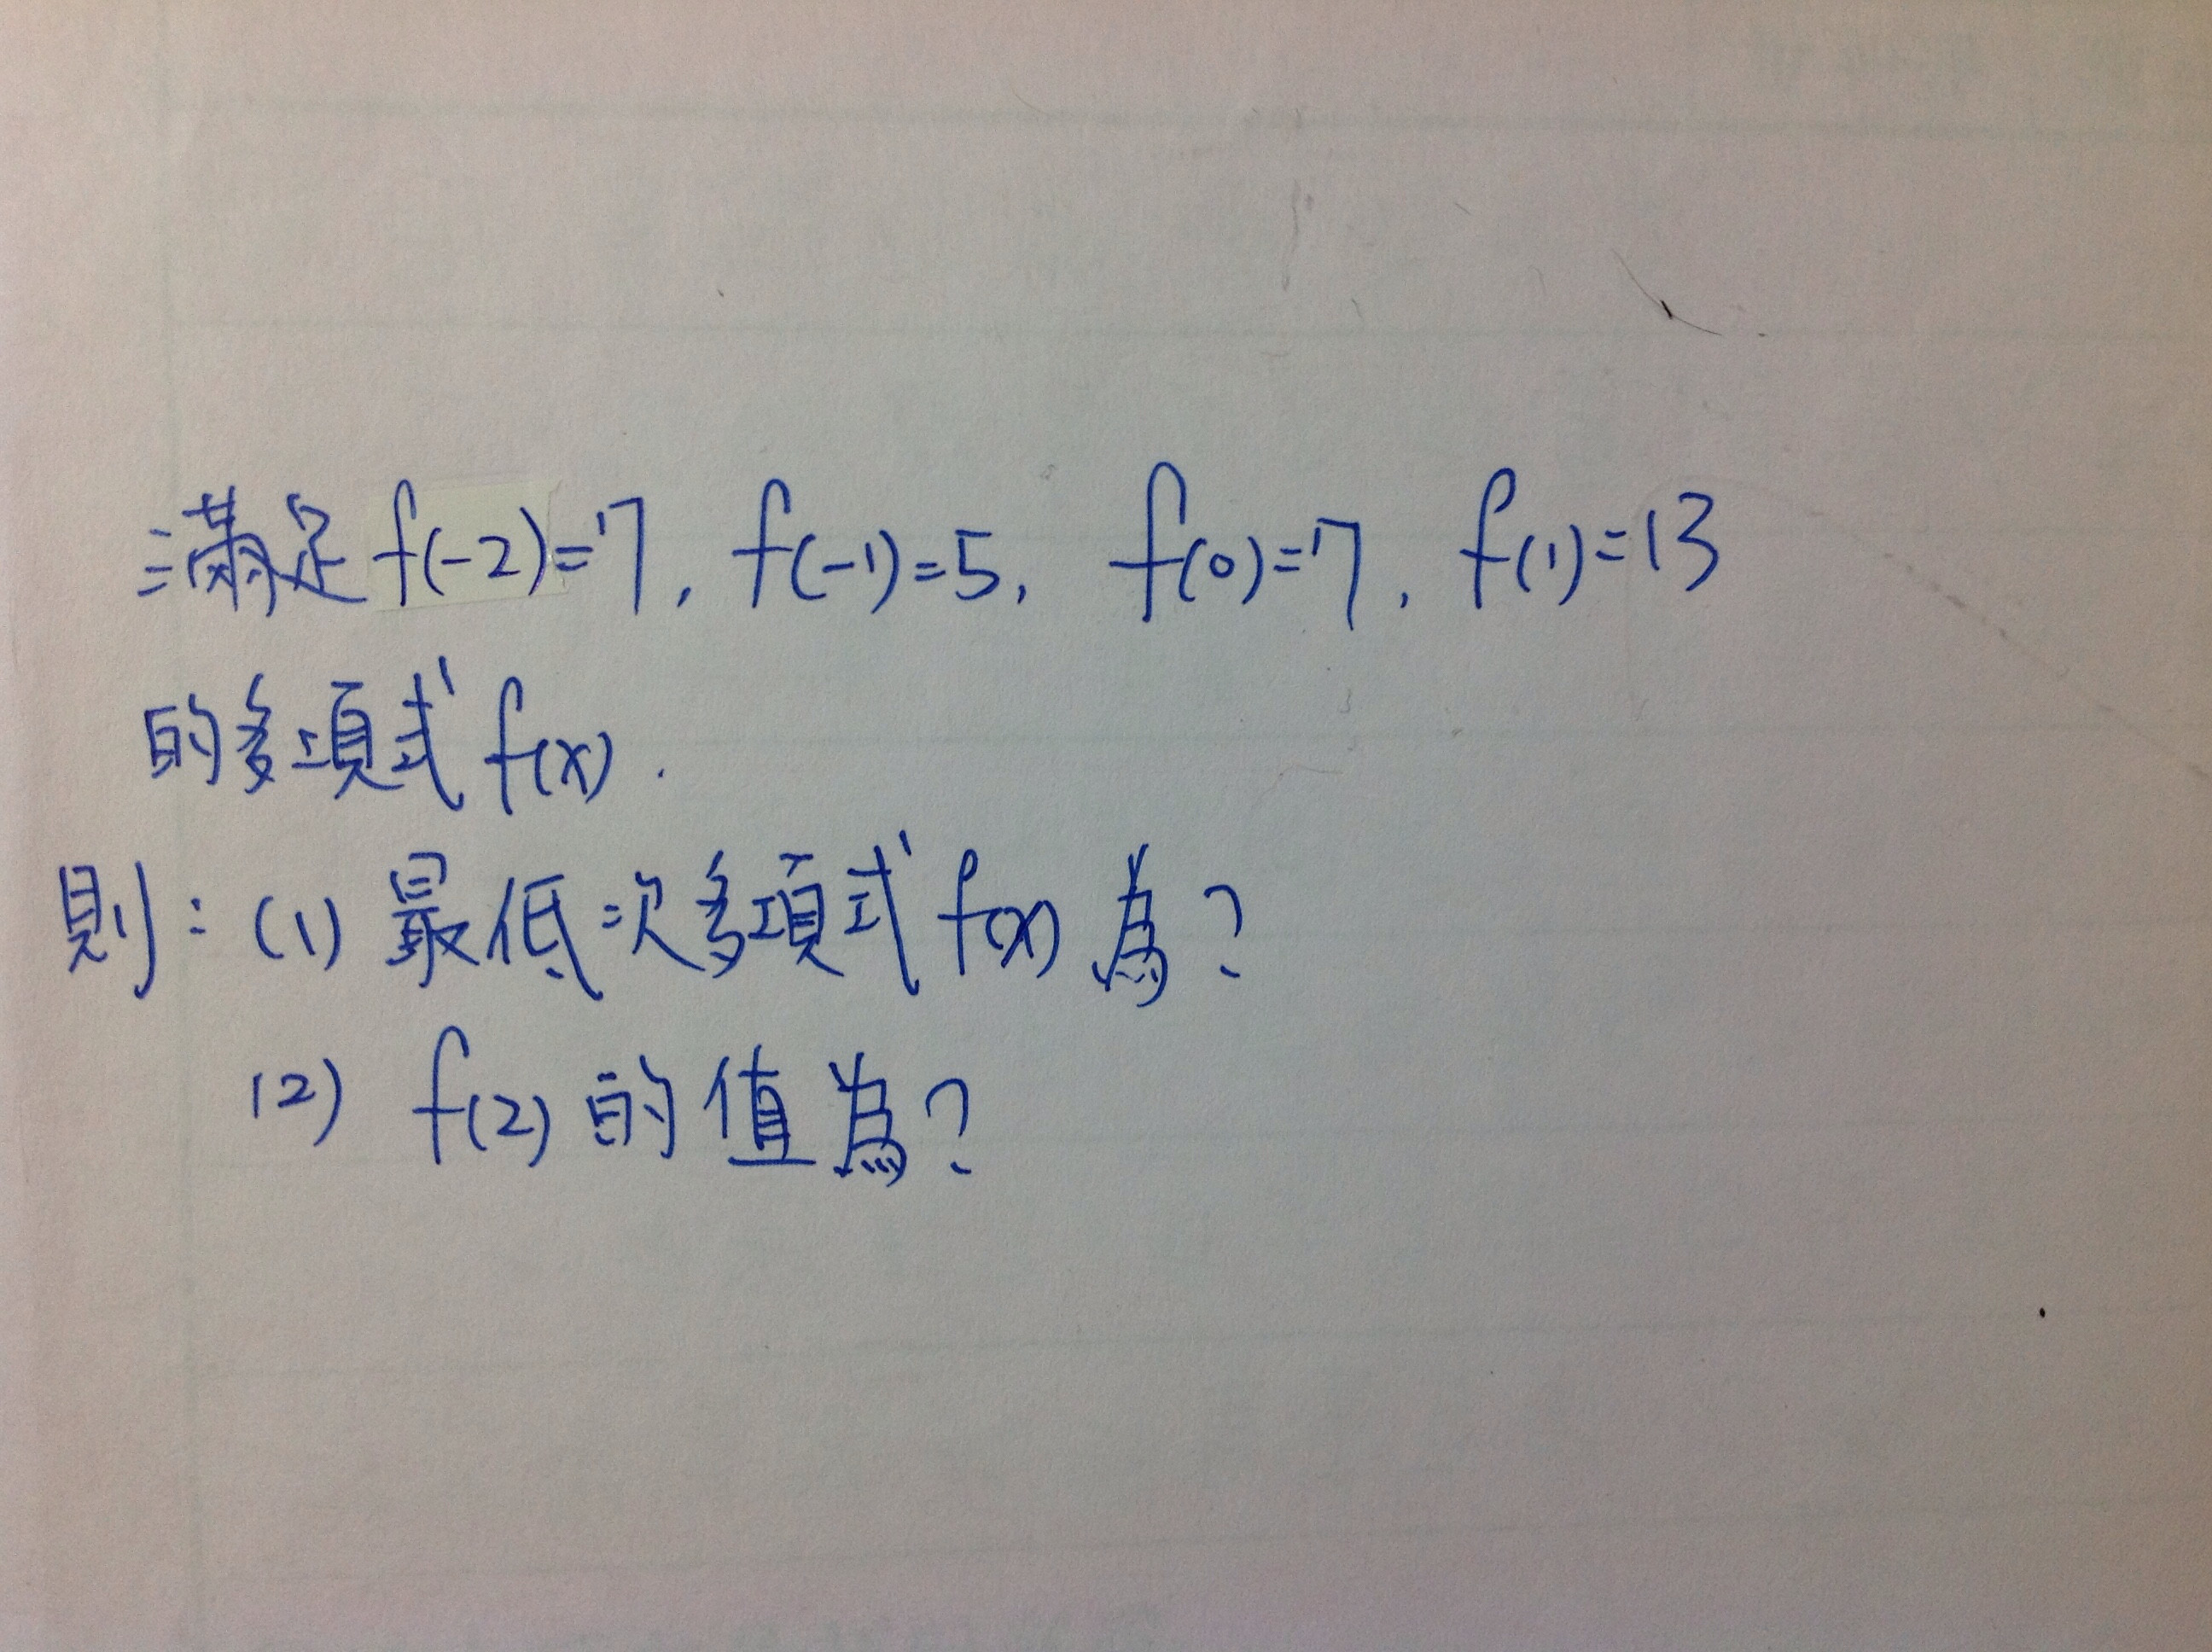 滿足 f(-2)=7, f(-1)=5, f(0)=7, f(1)=13
的多項式 f(x).
則: (1) 最低次多項式 f(x) 為?
(2) f(2) 的值為?